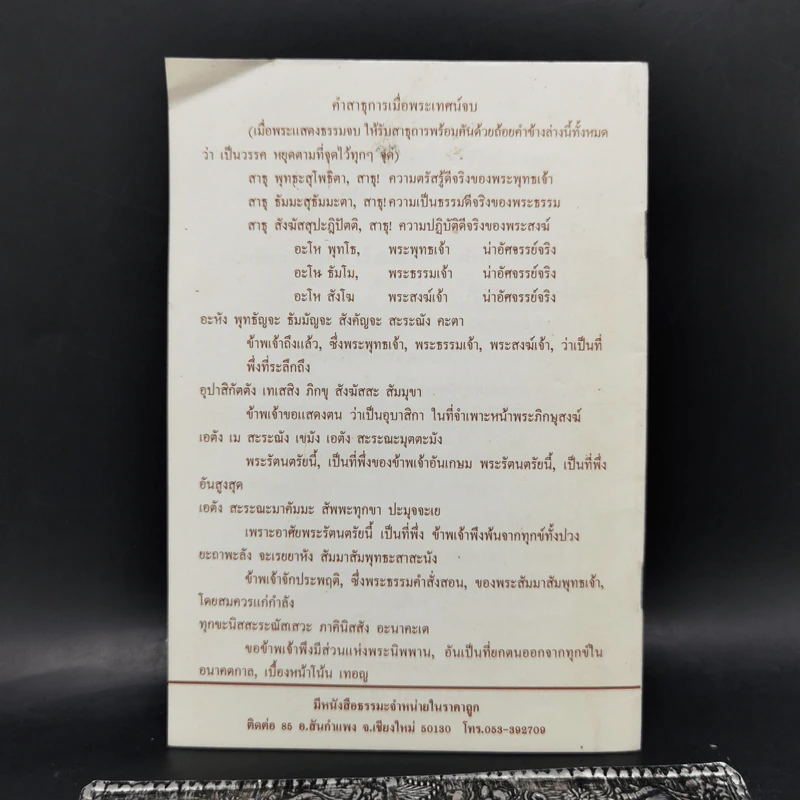 คำสาธุการเมื่อพระเทศน์จบ
(เมื่อพระแสดงธรรมจบ ให้รับสาธุการพร้อมกันด้วยถ้อยคำข้างล่างนี้ทั้งหมด
ว่า เป็นวรรค หยุดตามที่จุดไว้ทุกๆ จุด)
สาธุ พุทธะสุโพธิตา, สาธุ! ความตรัสรู้ดีจริงของพระพุทธเจ้า
สาธุ ธัมมะสุธัมมะตา, สาธุ! ความเป็นธรรมดีจริงของพระธรรม
สาธุ สังฆัสสุปะฏิปัตติ, สาธุ! ความปฏิบัติดีจริงของพระสงฆ์
อะโห พุทโธ, พระพุทธเจ้า น่าอัศจรรย์จริง
อะโห ธัมโม, พระธรรมเจ้า น่าอัศจรรย์จริง
อะโห สังโฆ พระสงฆ์เจ้า น่าอัศจรรย์จริง
อะหัง พุทธัญจะ ธัมมัญจะ สังคัญจะ สะระณัง คะตา
ข้าพเจ้าถึงแล้ว, ซึ่งพระพุทธเจ้า, พระธรรมเจ้า, พระสงฆ์เจ้า, ว่าเป็นที่
พึ่งที่ระลึกถึง
อุปาสิกัตตัง เทเสสิง ภิกขุ สังฆัสสะ สัมมุขา
ข้าพเจ้าขอแสดงตน ว่าเป็นอุบาสิกา ในที่จำเพาะหน้าพระภิกษุสงฆ์
เอตัง เม สะระณัง เขมัง เอตัง สะระณะมุตตะมัง
พระรัตนตรัยนี้, เป็นที่พึ่งของข้าพเจ้าอันเกษม พระรัตนตรัยนี้, เป็นที่พึ่ง
อันสูงสุด
เอตัง สะระณะมาคัมมะ สัพพะทุกขา ปะมุจจะเย
เพราะอาศัยพระรัตนตรัยนี้ เป็นที่พึ่ง ข้าพเจ้าพึงพ้นจากทุกข์ทั้งปวง
ยะถาพะลัง จะเรยยาหัง สัมมาสัมพุทธะสาสะนัง
ข้าพเจ้าจักประพฤติ, ซึ่งพระธรรมคำสั่งสอน, ของพระสัมมาสัมพุทธเจ้า,
โดยสมควรแก่กำลัง
ทุกขะนิสสะระณัสเสวะ ภาคินิสสัง อะนาคะเต
ขอข้าพเจ้าพึงมีส่วนแห่งพระนิพพาน, อันเป็นที่ยกตนออกจากทุกข์ใน
อนาคตกาล, เบื้องหน้าโน้น เทอญ
มีหนังสือธรรมะจำหน่ายในราคาถูก
ติดต่อ 85 อ.สันกำแพง จ.เชียงใหม่ 50130 โทร.053-392709